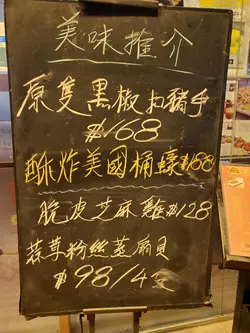 美味推介
原隻黑椒扣豬手
$168
酥炸美國桶蠔$188
脆皮芝麻雞$128
蒜茸粉丝蒸扇貝
$98/4隻